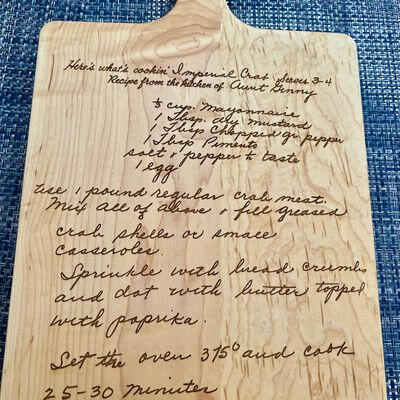 Here's what's cookin' Imperial Crab Serves 3-4
Recipe from the kitchen of Aunt Ginny
cup Mayonnaise
1 Tbsp. dry mustard
1 Tbsp Chopped gr. pepper
1 Tbsp Pimento
salt & pepper to taste
1 egg
Use 1 pound regular crab meat.
Mix all of above & fill greased
crab shells or small
casseroles.
Sprinkle with bread crumbs
and dot with butter topped
with paprika.
Set the oven 375° and cook
25-30 minutes